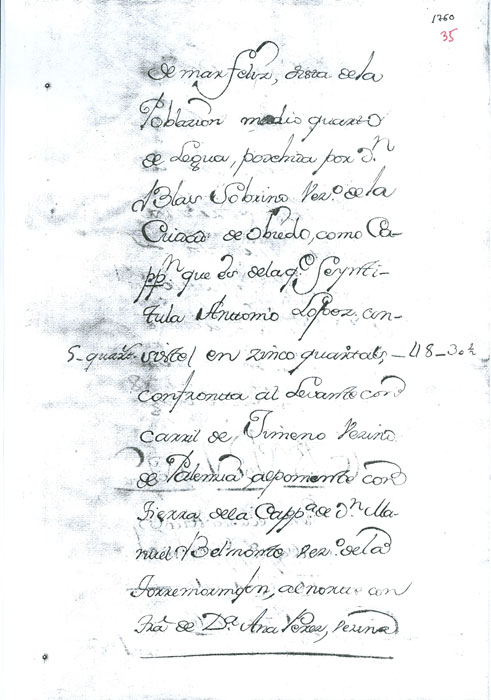 1760
35
de mar feliz, dista dela
Poblazion medio quarto
de Legua, posehida por Dn
Blas Sobrino Vez.o dela
Ciudad de Obiedo, como Ca-
ppn que es dela q.e Seynti-
tula Antonio Lopez, con-
5 - quart.s siste en zinco quartals, - 48 - 30 ½
confronta al Levante con
carril de Timeno Vezino
de Palenzia alponiente con
Tierra dela Capp.a de Dn Ma-
nuel Belmonte Vez.o dela
Torremormojon, al norte con
Tra de D.a Ana Perez, Vezina